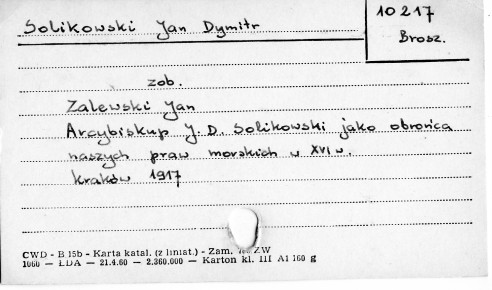 Solikowski Jan Dymitr
10217
Brosz.
zob.
Zalewski Jan
Arcybiskup J. D. Solikowski jako obrońca
naszych praw morskich w XVI w.
Kraków 1917
CWD - B 15b - Karta katal. (z liniat.) - Zam. ZW
1060 — LDA — 21.4.60 — 2.360.000 — Karton kl. III A1 160 g